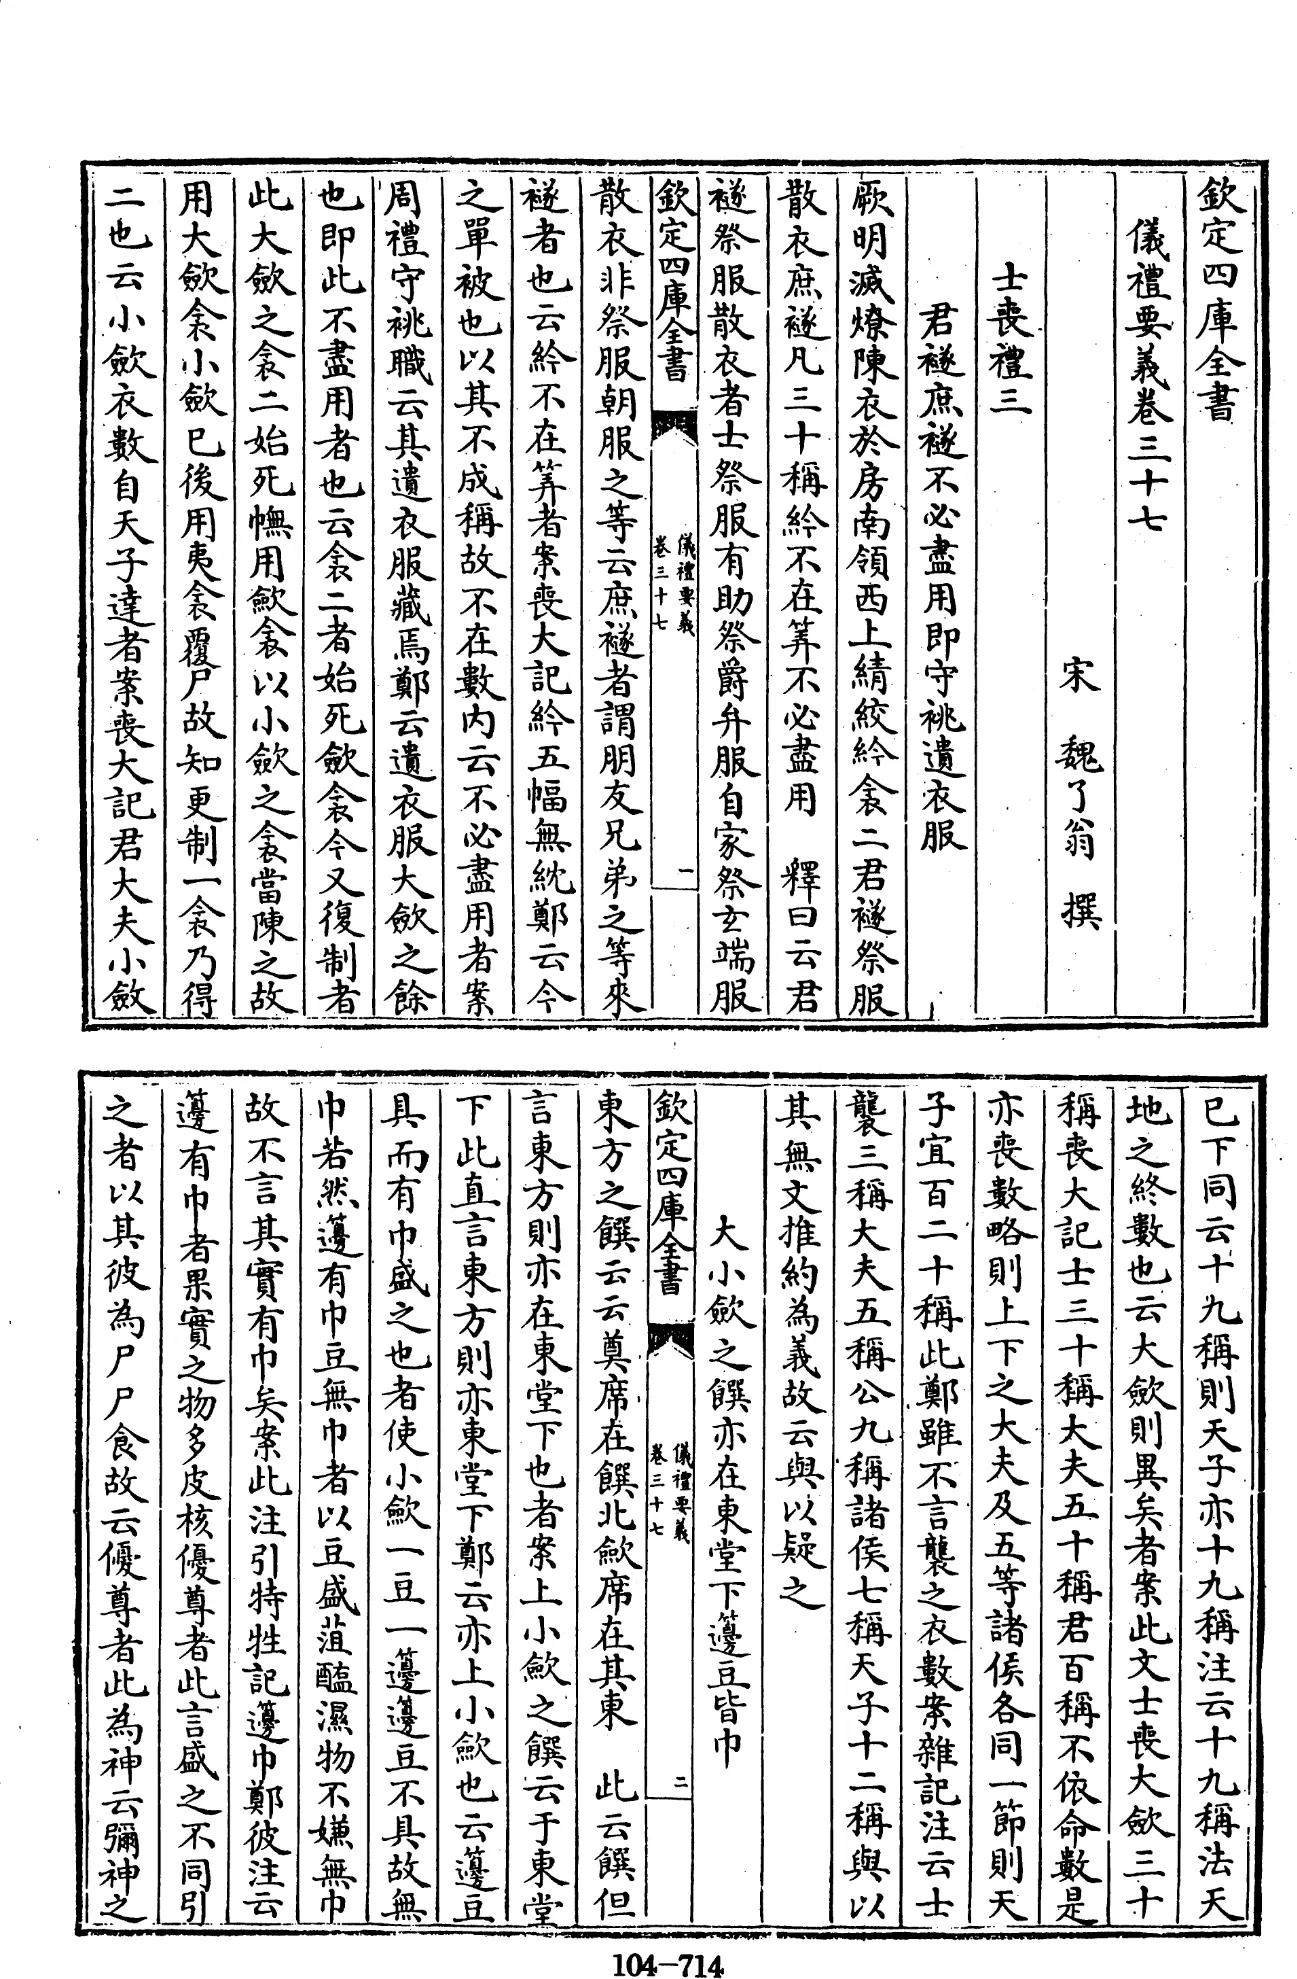 欽定四庫全書
儀禮要義卷三十七
宋 魏了翁 撰
士喪禮三
君襚庶襚不必盡用即守祧遺衣服
厥明滅燎陳衣於房南領西上綪絞紟衾二君襚祭服
散衣庶襚凡三十稱紟不在筭不必盡用 釋曰云君
襚祭服散衣者士祭服有助祭爵弁服自家祭玄端服
欽定四庫全書
儀禮要義
卷三十七
一
散衣非祭服朝服之等云庶襚者謂朋友兄弟之等來
襚者也云紟不在筭者案喪大記紟五幅無紞鄭云今
之單被也以其不成稱故不在數內云不必盡用者案
周禮守祧職云其遺衣服藏焉鄭云遺衣服大歛之餘
也即此不盡用者也云衾二者始死歛衾今又復制者
此大歛之衾二始死幠用歛衾以小歛之衾當陳之故
用大歛衾小歛已後用夷衾覆尸故知更制一衾乃得
二也云小歛衣數自天子達者案喪大記君大夫小斂
已下同云十九稱則天子亦十九稱注云十九稱法天
地之終數也云大歛則異矣者案此文士喪大歛三十
稱喪大記士三十稱大夫五十稱君百稱不依命數是
亦喪數略則上下之大夫及五等諸侯各同一節則天
子宜百二十稱此鄭雖不言襲之衣數案雜記注云士
襲三稱大夫五稱公九稱諸侯七稱天子十二稱與以
其無文推約為義故云與以疑之
大小歛之饌亦在東堂下籩豆皆巾
欽定四庫全書
儀禮要義
卷三十七
二
東方之饌云云奠席在饌北歛席在其東 此云饌但
言東方則亦在東堂下也者案上小歛之饌云于東堂
下此直言東方則亦東堂下鄭云亦上小歛也云籩豆
具而有巾盛之也者使小歛一豆一籩籩豆不具故無
巾若然籩有巾豆無巾者以豆盛菹醢濕物不嫌無巾
故不言其實有巾矣案此注引特牲記籩巾鄭彼注云
籩有巾者果實之物多皮核優尊者此言盛之不同引
之者以其彼為尸尸食故云優尊者此為神云彌神之
104-714